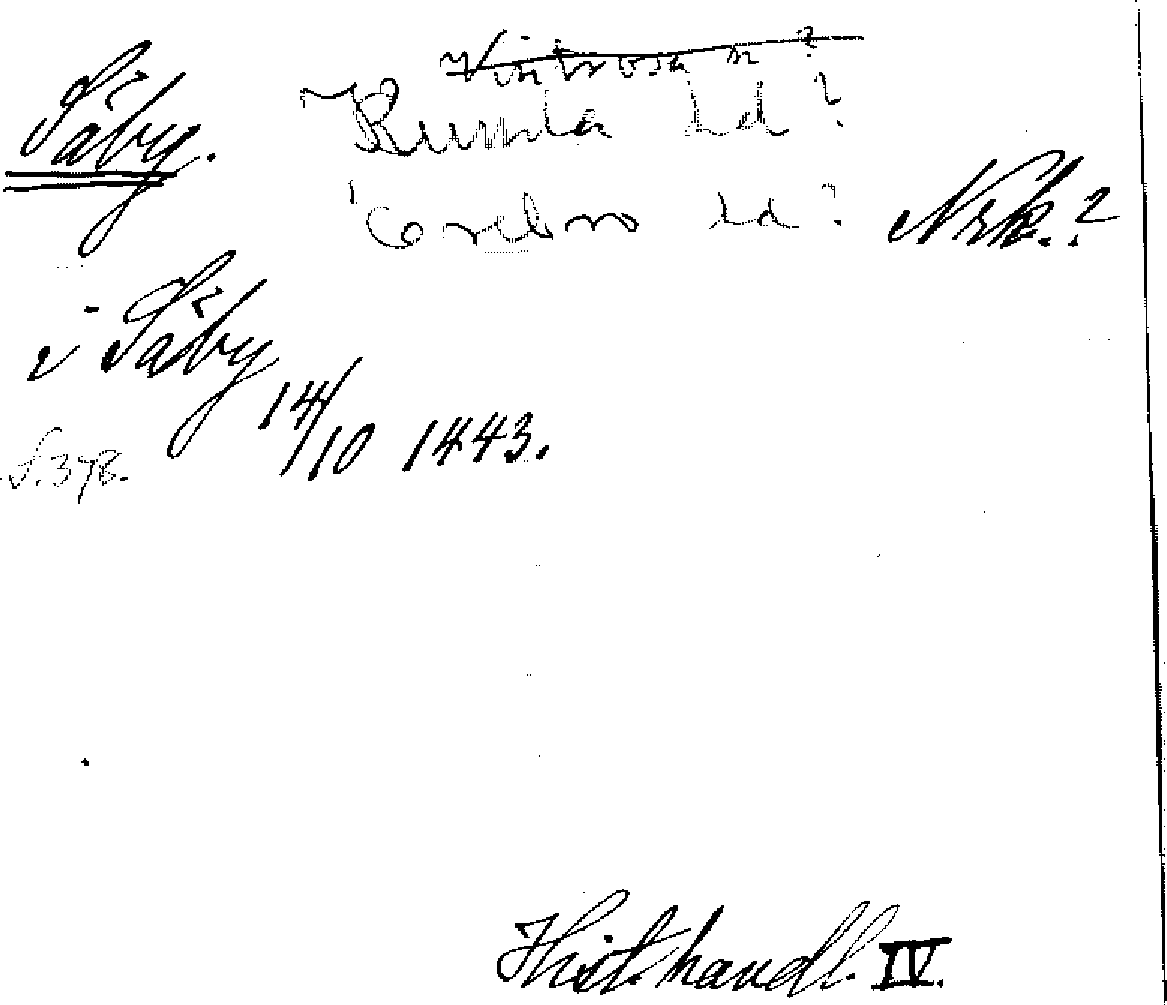 Vintrosa sn?
Säby. Kumla hd?
Örebro hd? Nrk.?
i Säby
14/10 1443.
S. 378.
Hist. handl. IV.